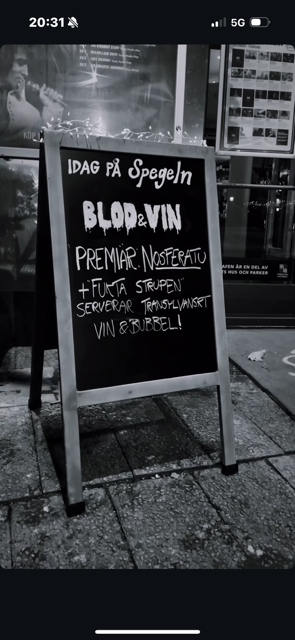 20:31
5G
IDAG PÅ Spegeln
BLOD & VIN
PREMIÄR: NOSFERATU
+ FUKTA STRUPEN
SERVERAR TRANSYLVANSKT
VIN & BUBBEL!
KÖP
AFEN ÄR EN DEL AV
TS HUS OCH PARKER